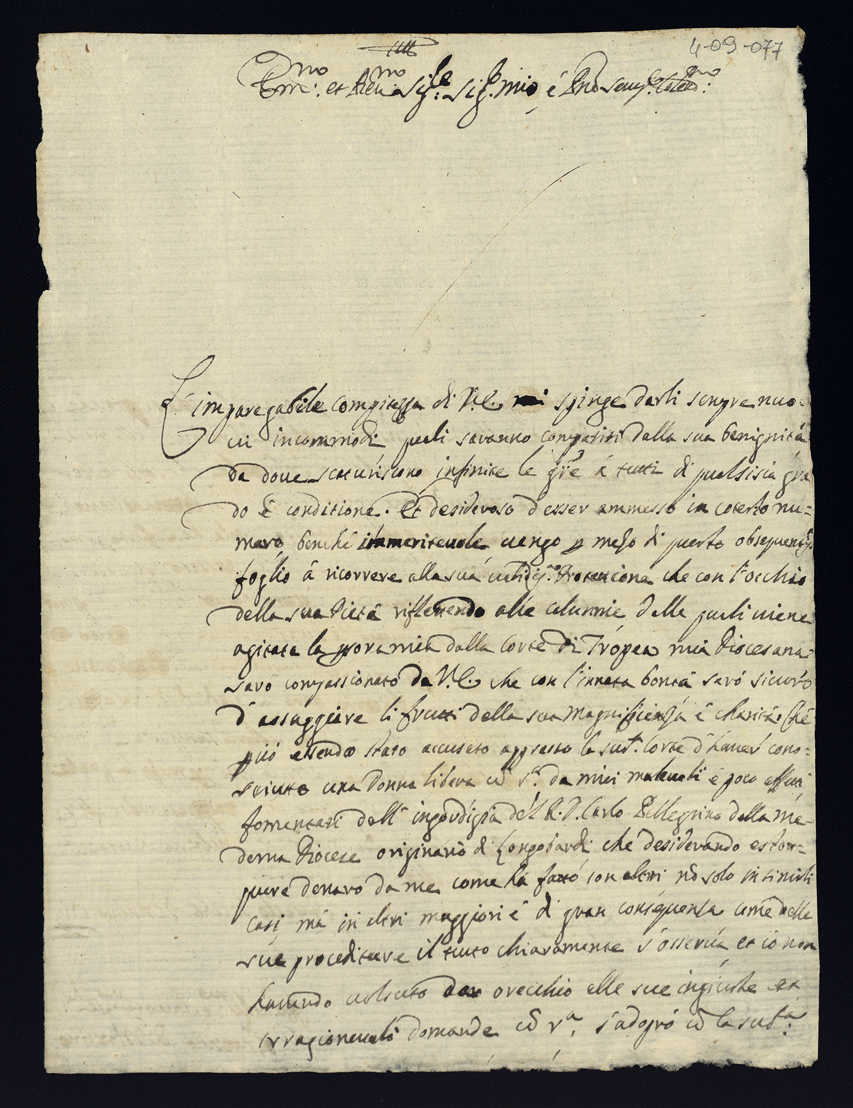 4-09-077
Em.mo et Rev.mo Sig.re Sig.r mio, é Pne
L'imparegabile compitezza di V.E. mi spinge darli sempre nuo=
vi incommodi quali saranno compatiti dalla sua benignità
da dove scaturiscono infinite le gr.e à tutti di qualsisia gra
do é conditione. Et desideroso d'esser ammesso in cotesto nu=
mero, benche immeritevole vengo p mezo di questo
foglio à ricorrere alla sua Protezione che con l'occhio
della sua Pietà riflettendo alle calunnie dalle quali viene
agitata la mia dalla Corte di Tropea mia Diocesana
sarò compassionato da V.E. che con l'innata bontà sarò sicuro
d'assaggiare li frutti della sua magnificenza é charità. Che
più essendo stato accusato appresso la sud.a Corte d'haver cono=
sciuto una Donna libera da miei malevoli é poco affetti
fomentati dall'ingordigia del R.D. Carlo Pellegrino della me
dema Diocese originario di Longobardi che desiderando estor=
quere denaro da me come hà fatto con altri nò solo in simili
casi mà in altri maggiori é di gran consequenza come nelle
sue procediture il tutto chiaramente s'osserva et io non
havendo voluto dar orecchio alle sue ingiuste et
irragionevoli domande s'adoprò cò la sud.a